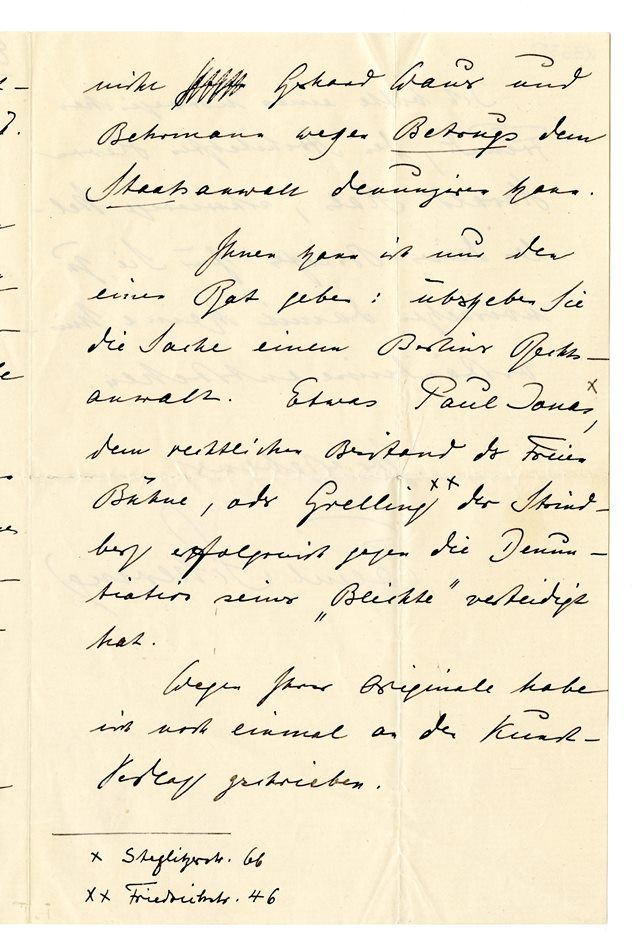 nicht Gerhard Wans und
Behrmann wegen Betrugs dem
Staatsanwalt denunziren kann.
Ihnen kann ich nur den
einen Rat geben: übergeben Sie
die Sache einem Berliner Rechts–
anwalt. Etwas Paul Jonas x,
dem rechtlichen Beistand der Freien
Bühne, oder Grelling xx, der Strind–
berg erfolgreich gegen die Denun–
tiation seiner „Beichte" verteidigt
hat.
Wegen Ihrer Originale habe
ich noch einmal an den Kunst–
Verlag geschrieben.
x Steglitzerstr. 66
xx Friedrichstr. 46